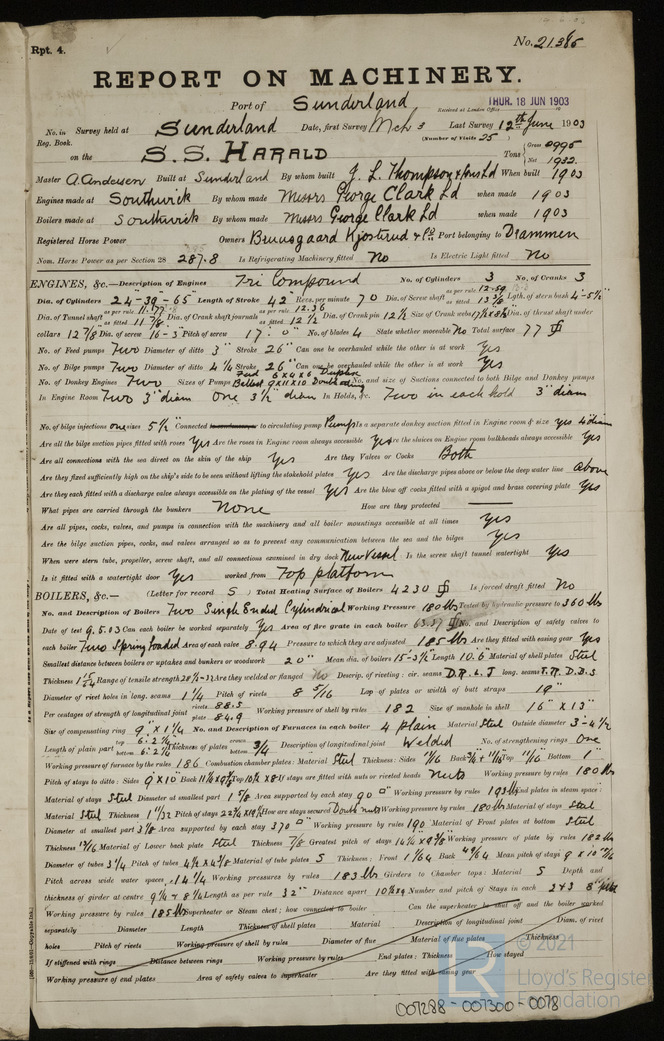 Rpt. 4.
No. 21386
REPORT ON MACHINERY.
Port of Sunderland
Received at London Office THUR. 18 JUN 1903
No. in Survey held at Sunderland Date, first Survey Mch 3 Last Survey 12th June 1903
Reg. Book. (Number of Visits 25)
on the S.S. HARALD Tons Gross Net 1932
Master A. Andersen Built at Sunderland By whom built J. L. Thompson & Sons Ld When built 1903
Engines made at Southwick By whom made Messrs George Clark Ld when made 1903
Boilers made at Southwick By whom made Messrs George Clark Ld when made 1903
Registered Horse Power Owners Bruusgaard Kjosterud & Co Port belonging to Drammen
Nom. Horse Power as per Section 28 287.8 Is Refrigerating Machinery fitted No Is Electric Light fitted No
ENGINES, &c.—Description of Engines Tri Compound No. of Cylinders 3 No. of Cranks 3
Dia. of Cylinders 24"-39"-65" Length of Stroke 42" Revs. per minute 70 Dia. of Screw shaft as per rule 12.59 as fitted 13 3/8 Lgth. of stern bush 4-5½"
Dia. of Tunnel shaft as per rule as fitted 11 7/8 Dia. of Crank shaft journals as per rule 12.36 as fitted 12½ Dia. of Crank pin 12½ Size of Crank webs Dia. of thrust shaft under
collars 12 7/8 Dia. of screw 16-3" Pitch of screw 17.0" No. of blades 4 State whether moveable No Total surface 77
No. of Feed pumps Two Diameter of ditto 3" Stroke 26" Can one be overhauled while the other is at work Yes
No. of Bilge pumps Two Diameter of ditto 4¼ Stroke 26" Can one be overhauled while the other is at work Yes
No. of Donkey Engines Two Sizes of Pumps Feed 6x4x6 Duplex Ballast 9x11x10 Double acting No. and size of Suctions connected to both Bilge and Donkey pumps
In Engine Room Two 3" diam One 3½" diam In Holds, &c. Two in each hold 3" diam
No. of bilge injections one sizes 5½" Connected to circulating pump Pump Is a separate donkey suction fitted in Engine room & size yes 4" diam
Are all the bilge suction pipes fitted with roses Yes Are the roses in Engine room always accessible Yes Are the sluices on Engine room bulkheads always accessible Yes
Are all connections with the sea direct on the skin of the ship Yes Are they Valves or Cocks Both
Are they fixed sufficiently high on the ship's side to be seen without lifting the stokehold plates Yes Are the discharge pipes above or below the deep water line above
Are they each fitted with a discharge valve always accessible on the plating of the vessel Yes Are the blow off cocks fitted with a spigot and brass covering plate Yes
What pipes are carried through the bunkers None How are they protected —
Are all pipes, cocks, valves, and pumps in connection with the machinery and all boiler mountings accessible at all times Yes
Are the bilge suction pipes, cocks, and valves arranged so as to prevent any communication between the sea and the bilges Yes
When were stern tube, propeller, screw shaft, and all connections examined in dry dock New Vessel Is the screw shaft tunnel watertight Yes
Is it fitted with a watertight door Yes worked from Top platform
BOILERS, &c.— (Letter for record S) Total Heating Surface of Boilers 4230 Is forced draft fitted No
No. and Description of Boilers Two Single Ended Cylindrical Working Pressure 180 lbs Tested by hydraulic pressure to 360 lbs
Date of test 9.5.03 Can each boiler be worked separately Yes Area of fire grate in each boiler No. and Description of safety valves to
each boiler Two Spring loaded Area of each valve 8.94 Pressure to which they are adjusted 185 lbs Are they fitted with easing gear Yes
Smallest distance between boilers or uptakes and bunkers or woodwork 20" Mean dia. of boilers 15-3½" Length 10.6" Material of shell plates Steel
Thickness Range of tensile strength Are they welded or flanged No Descrip. of riveting: cir. seams D.R.L.J long. seams T.R.D.B.S
Diameter of rivet holes in long. seams 1¼ Pitch of rivets 8 5/16 Lap of plates or width of butt straps 19"
Per centages of strength of longitudinal joint rivets 88.5 plate 84.9 Working pressure of shell by rules 182 Size of manhole in shell 16" x 13"
Size of compensating ring 9" x 1¼ No. and Description of Furnaces in each boiler 4 Plain Material Steel Outside diameter 3-4½
Length of plain part top 6.2¼ bottom 6.2¼ Thickness of plates crown bottom 3/4 Description of longitudinal joint Welded No. of strengthening rings One
Working pressure of furnace by the rules 186 Combustion chamber plates: Material Steel Thickness: Sides 11/16 Back Top 11/16 Bottom 1"
Pitch of stays to ditto: Sides 9 x 10" Back Top If stays are fitted with nuts or riveted heads Nuts Working pressure by rules 180 lbs
Material of stays Steel Diameter at smallest part 1 5/8 Area supported by each stay 90 Working pressure by rules 193 lbs End plates in steam space:
Material Steel Thickness 1 1/32 Pitch of stays How are stays secured Double nuts Working pressure by rules 180 lbs Material of stays Steel
Diameter at smallest part 3 1/8 Area supported by each stay 370 Working pressure by rules 190 Material of Front plates at bottom Steel
Thickness Material of Lower back plate Steel Thickness 7/8 Greatest pitch of stays Working pressure of plate by rules 182 lbs
Diameter of tubes 3¼ Pitch of tubes Material of tube plates S Thickness: Front 1 1/64 Back 49/64 Mean pitch of stays
Pitch across wide water spaces 14¼ Working pressures by rules 183 lbs Girders to Chamber tops: Material S Depth and
thickness of girder at centre 9¼ + 8¼ Length as per rule 32" Distance apart Number and pitch of Stays in each 2 + 3
Working pressure by rules 185 lbs Superheater or Steam chest; how connected to boiler Can the superheater be shut off and the boiler worked
separately Diameter Length Thickness of shell plates Material Description of longitudinal joint Diam. of rivet
holes Pitch of rivets Working pressure of shell by rules Diameter of flue Material of flue plates Thickness
If stiffened with rings Distance between rings Working pressure by rules End plates: Thickness How stayed
Working pressure of end plates Area of safety valves to superheater Are they fitted with easing gear
© 2021
Lloyd's Register
Foundation
007288-007300-0078